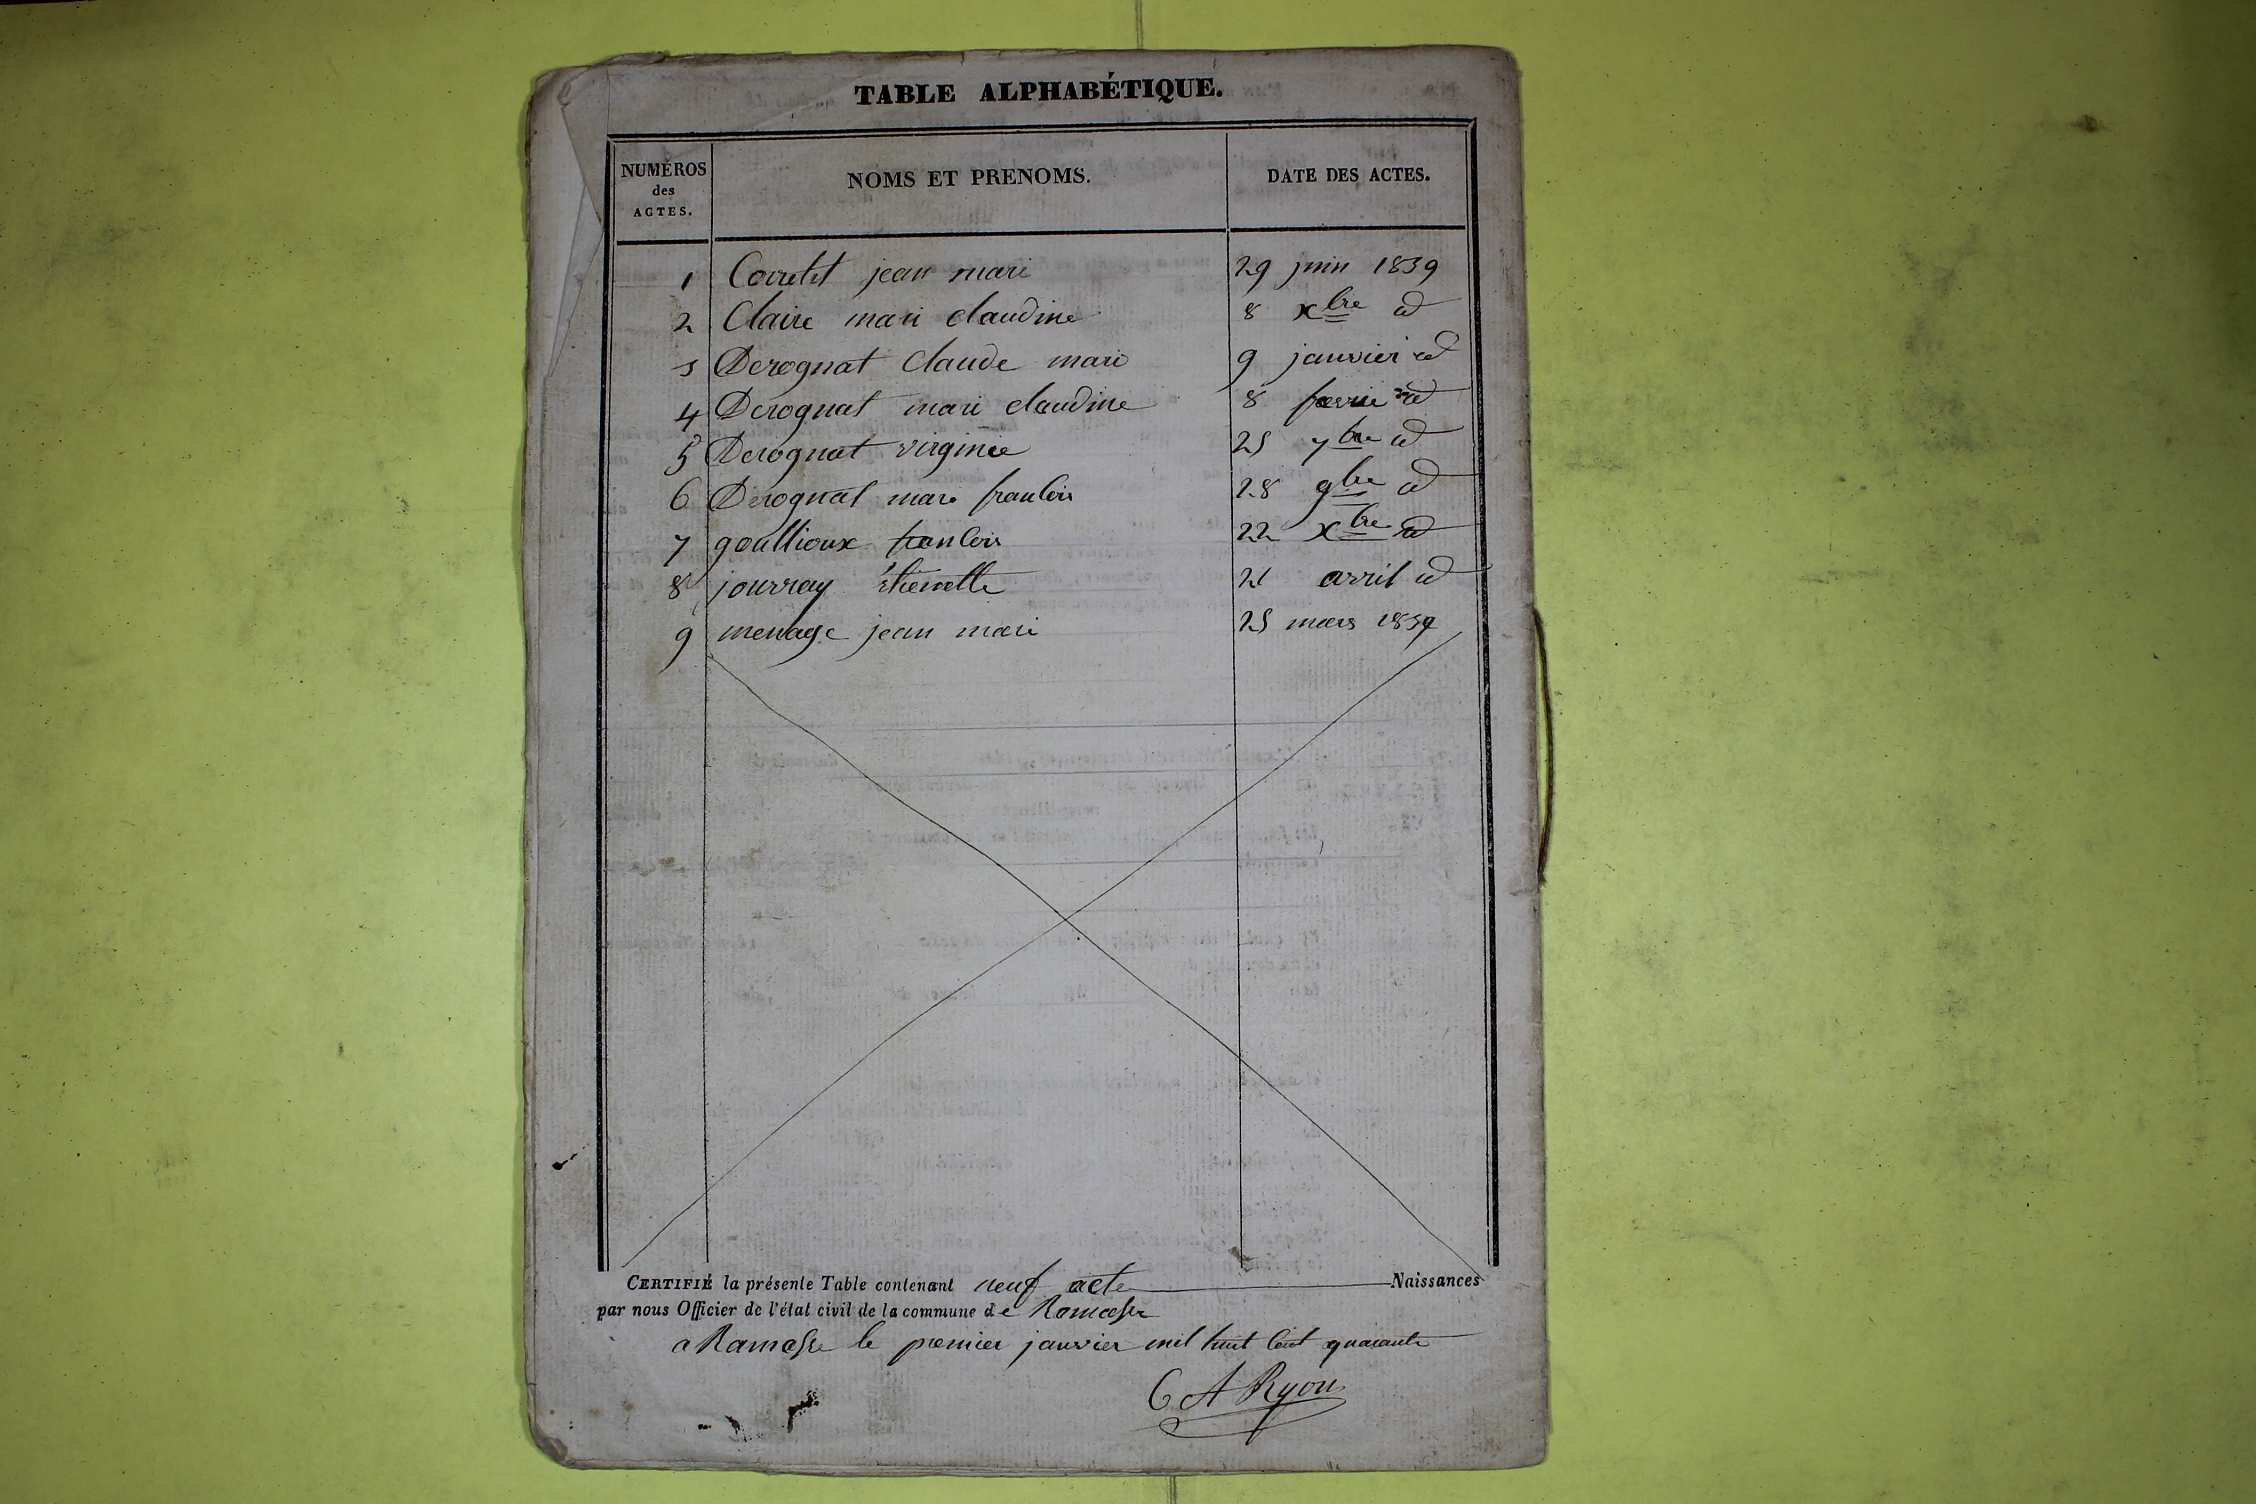 TABLE ALPHABÉTIQUE.
NUMÉROS des ACTES. NOMS ET PRENOMS. DATE DES ACTES.
1 Corretet jean mari 29 juin 1839
2 Claire mari claudine 8 xbre id
3 Derognat Claude mari 9 janvier id
4 Derognat mari claudine 8 fevrie id
5 Derognat virginie 25 7bre id
6 Derognat mari francois 28 9bre id
7 goullioux francois 22 xbre id
8 jouvray étienette 21 avril id
9 menage jean mari 25 mars 1839
CERTIFIÉ la présente Table contenant neuf acte Naissances
par nous Officier de l'état civil de la commune de Ramasse
a Ramasse le premier janvier mil huit cent quarante
C A Ryon